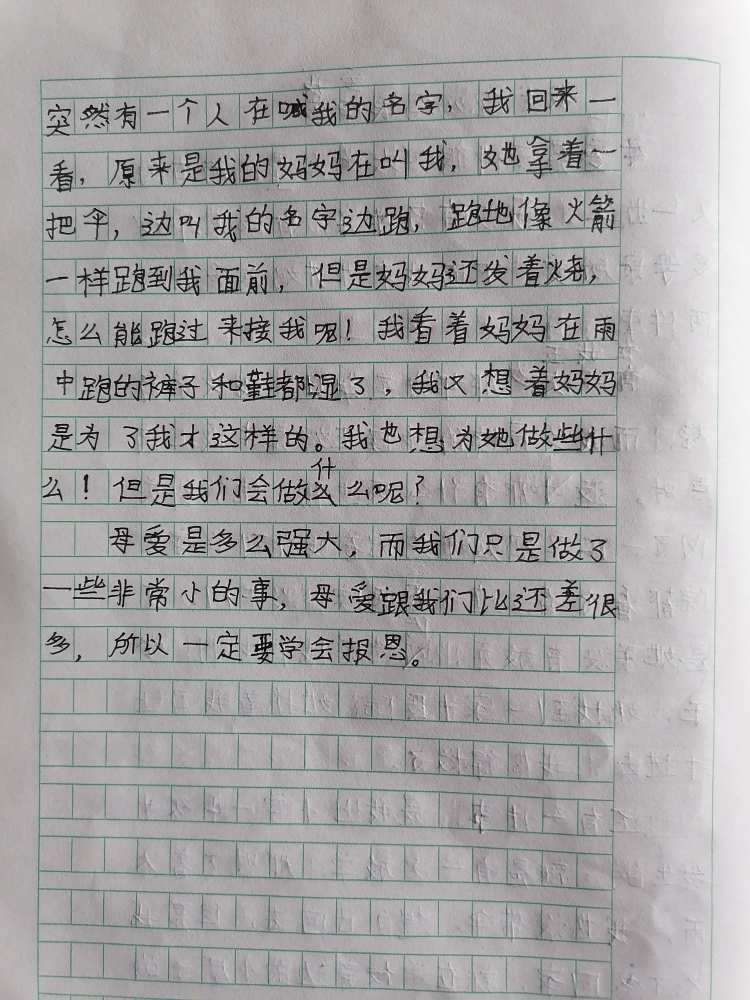 突然有一个人在喊我的名字，我回来一
看，原来是我的妈妈在叫我，她拿着一
把伞，边叫我的名字边跑，跑地像火箭
一样跑到我面前，但是妈妈还发着烧，
怎么能跑过来接我呢！我看着妈妈在雨
中跑的裤子和鞋都湿了，我又想着妈妈
是为了我才这样的。我也想为她做些什
么！但是我们会做什么呢？
母爱是多么强大，而我们只是做了
一些非常小的事，母爱跟我们比还差很
多，所以一定要学会报恩。